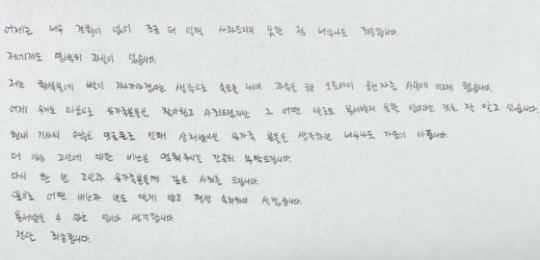 어제는 너무 경황이 없어 조금 더 일찍 사과드리지 못한 점 너무나도 죄송합니다.
저에게도 명백히 과실이 있습니다.
저는 횡단보도에 빨리 지나가야겠다는 생각으로 속도를 내며 과속을 해 오토바이 운전자를 사망에 이르게 했습니다.
어제 유가족분들을 찾아뵙고 사죄드렸지만 그 어떤 말로도 용서받지 못할 일이라는 것을 잘 알고 있습니다.
현재 기사의 수많은 악플들로 인해 상처받으실 유가족 분들을 생각하면 너무나도 가슴이 아픕니다.
더 이상 고인에 대한 비난은 멈춰주시길 간곡히 부탁드립니다.
다시 한 번 고인과 유가족분들께 깊은 사죄를 드립니다.
앞으로 어떤 비난과 벌도 달게 받고 평생 속죄하며 살겠습니다.
용서받을 수 없는 일이라 생각합니다.
정말 죄송합니다.